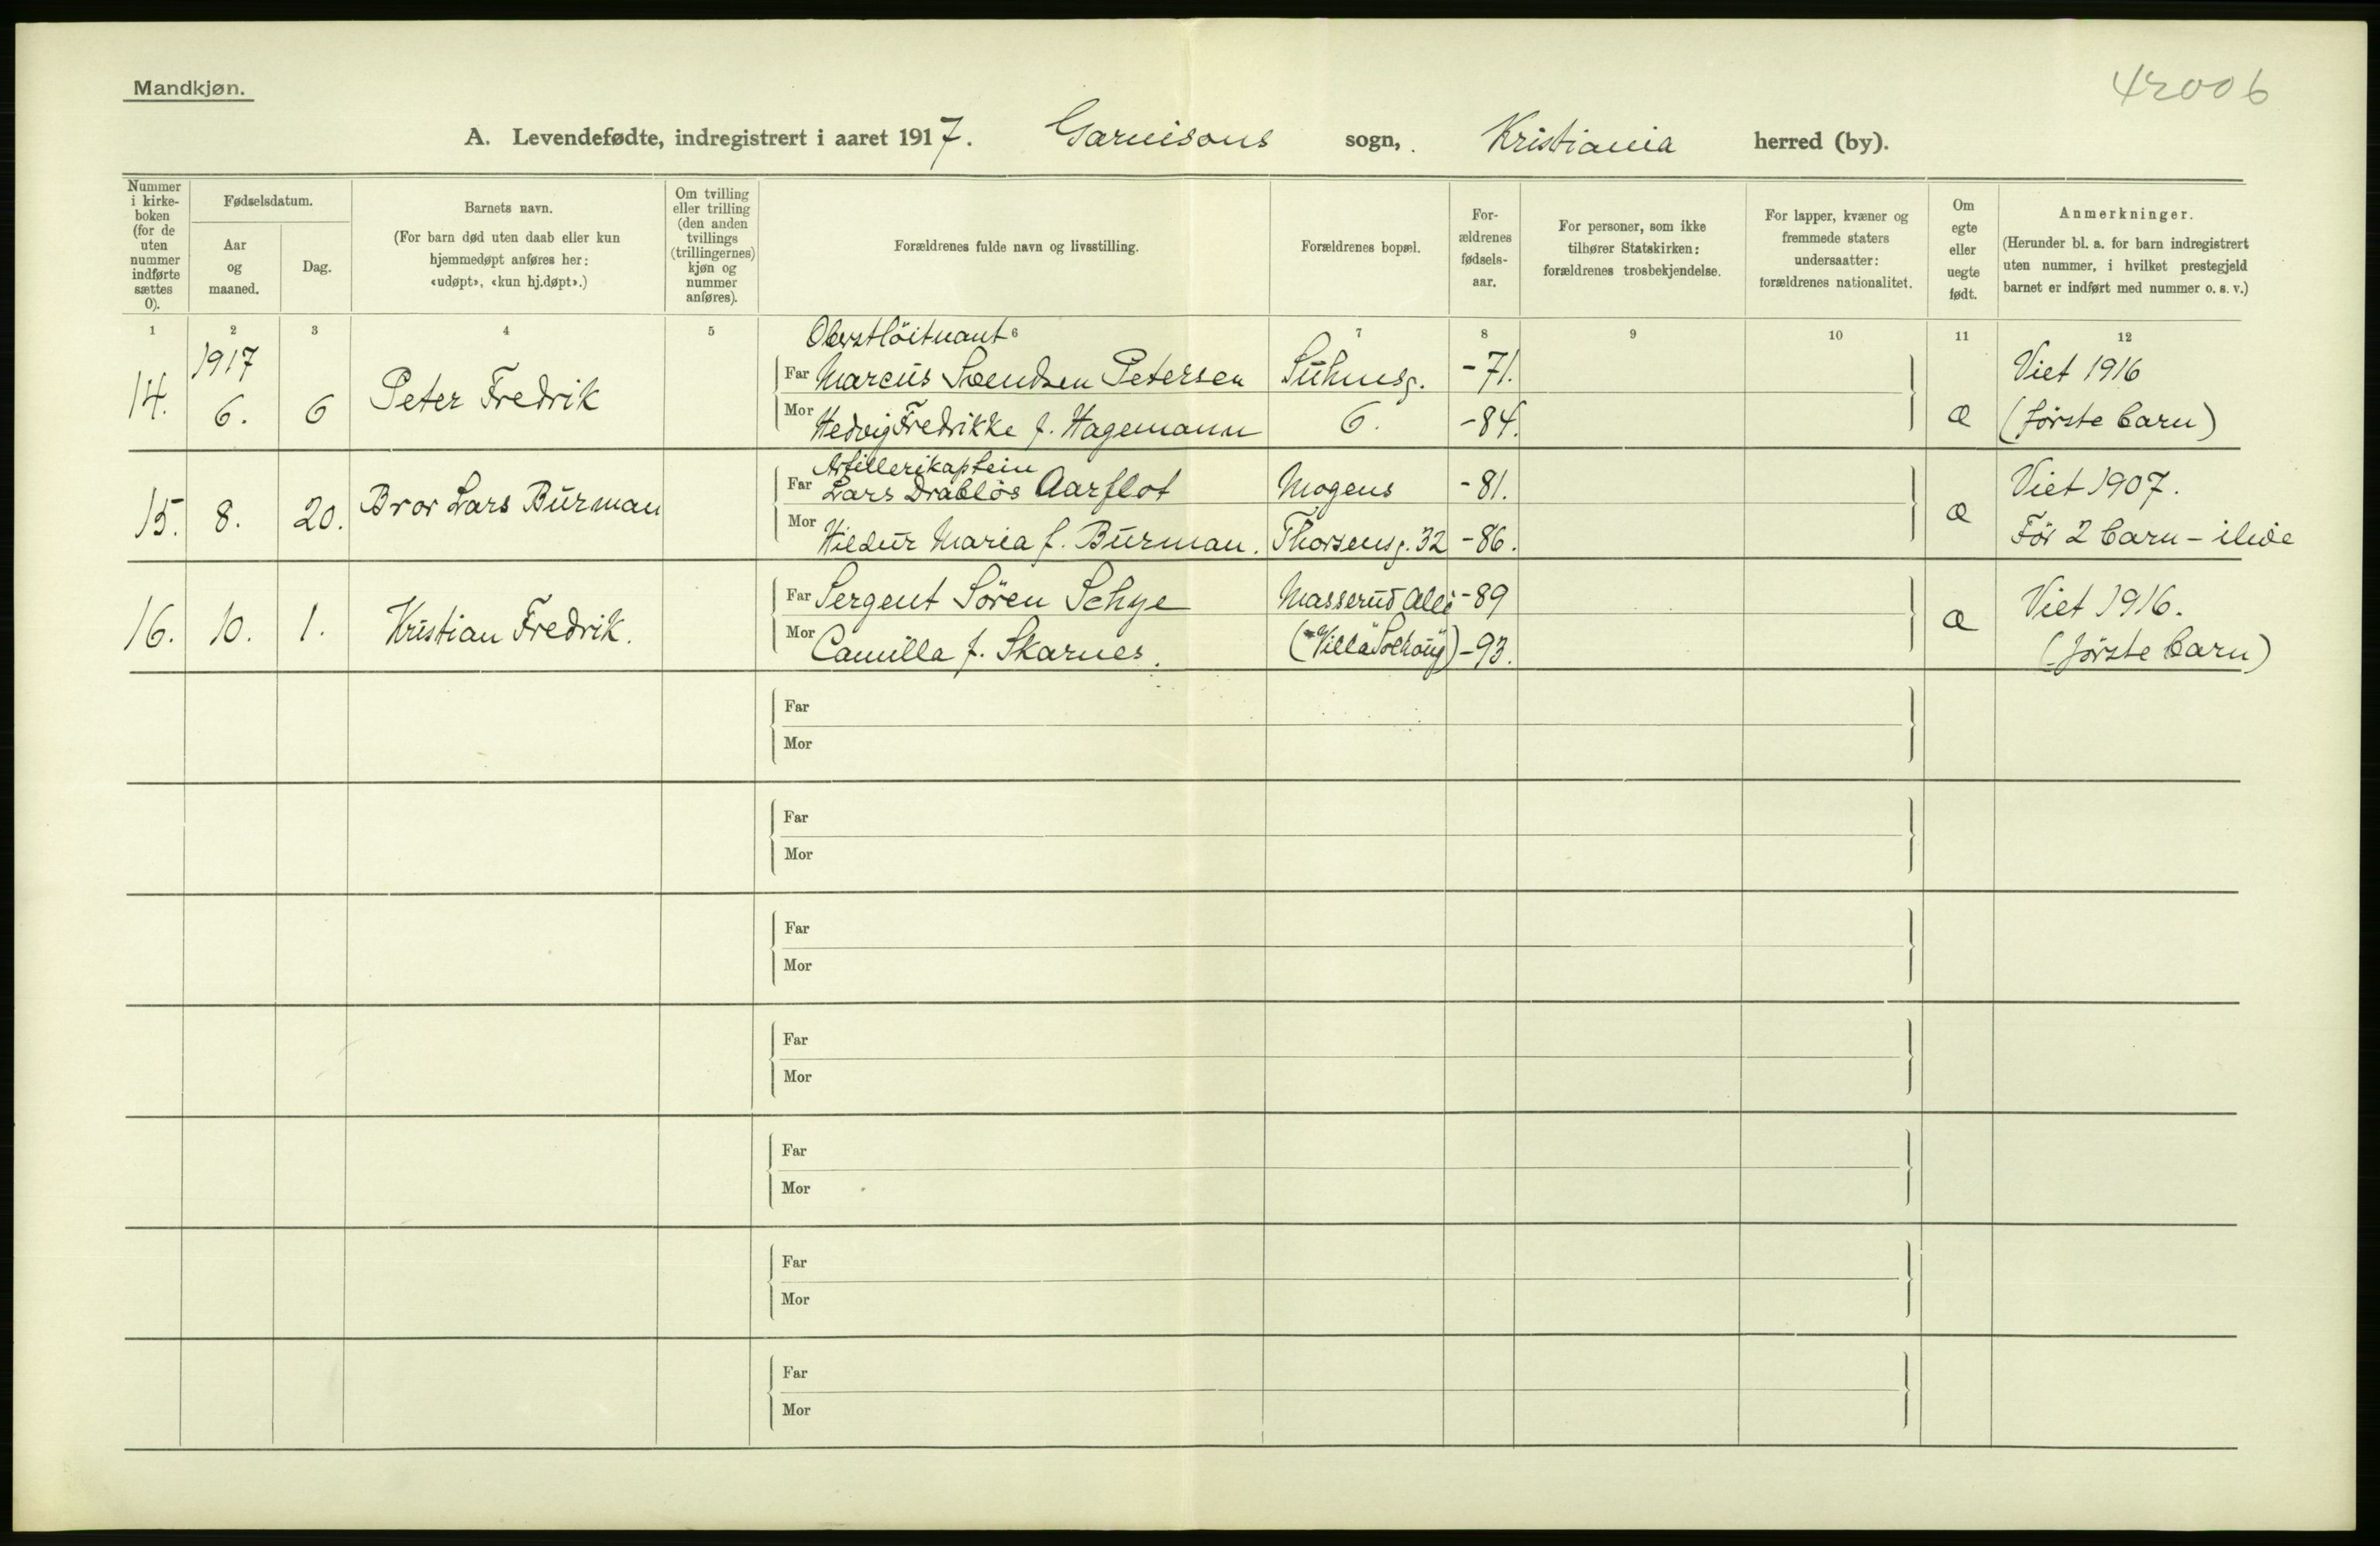 Mandkjøn.
42006
A. Levendefødte, indregistrert i aaret 1917. Garnisons sogn, Kristiania herred (by).
Nummer i kirke-boken (for de uten nummer indførte sættes 0).
Fødselsdatum.
Aar og maaned.
Dag.
Barnets navn.
(For barn død uten daab eller kun hjemmedøpt anføres her: «udøpt», «kun hj.døpt».)
Om tvilling eller trilling (den anden tvillings (trillingernes) kjøn og nummer anføres).
Forældrenes fulde navn og livsstilling.
Forældrenes bopæl.
For-ældrenes fødsels-aar.
For personer, som ikke tilhører Statskirken: forældrenes trosbekjendelse.
For lapper, kvæner og fremmede staters undersaatter: forældrenes nationalitet.
Om egte eller uegte født.
Anmerkninger.
(Herunder bl. a. for barn indregistrert uten nummer, i hvilket prestegjeld barnet er indført med nummer o. s. v.)
1 2 3 4 5 6 7 8 9 10 11 12
1917
Oberstlöitnant
14. 6. 6 Peter Fredrik
Far Marcus Svendsen Petersen Suhmsg. -71. Viet 1916
Mor Hedvig Fredrikke f. Hagemann 6. -84. æ (første barn)
Artillerikaptein
15. 8. 20. Bror Lars Burman
Far Lars Drabløs Aarflot Mogens -81. Viet 1907.
Mor Hildur Maria f. Burman. Thorsensg. 32 -86. æ Før 2 barn - ilive
16. 10. 1. Kristian Fredrik.
Far Sergent Sören Schye Masserud Allé -89 Viet 1916.
Mor Camilla f. Skarnes. ("Villa Solhaug") -93. æ (første barn)
Far
Mor
Far
Mor
Far
Mor
Far
Mor
Far
Mor
Far
Mor
Far
Mor